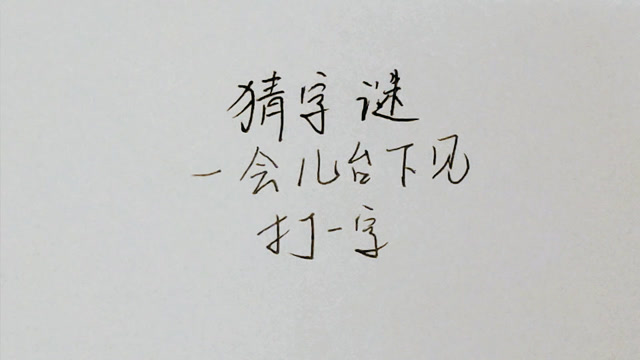 猜字谜
一会儿台下见
打一字